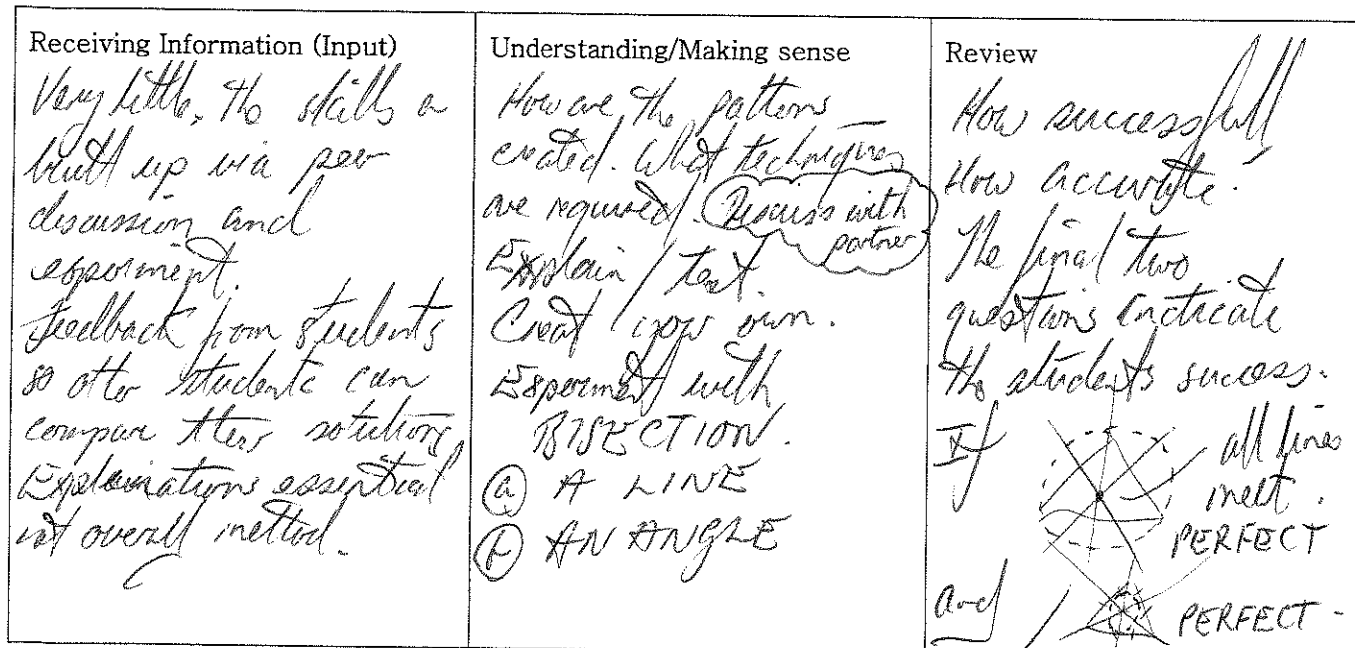 Receiving Information (Input)
Very little, the skills a
built up via peer
discussion and
experiment.
Feedback from students
so other students can
compare their solutions
Explainations essential
not overall method.
Understanding/Making sense
How are the patterns
created. What techniques
are required. Discuss with
partner
Explain / test.
Creat your own.
Experiment with
BISECTION.
(a) A LINE
(b) AN ANGLE
Review
How successfull
How accurate!
The final two
questions indicate
the students success.
If all lines
meet.
PERFECT
and PERFECT -